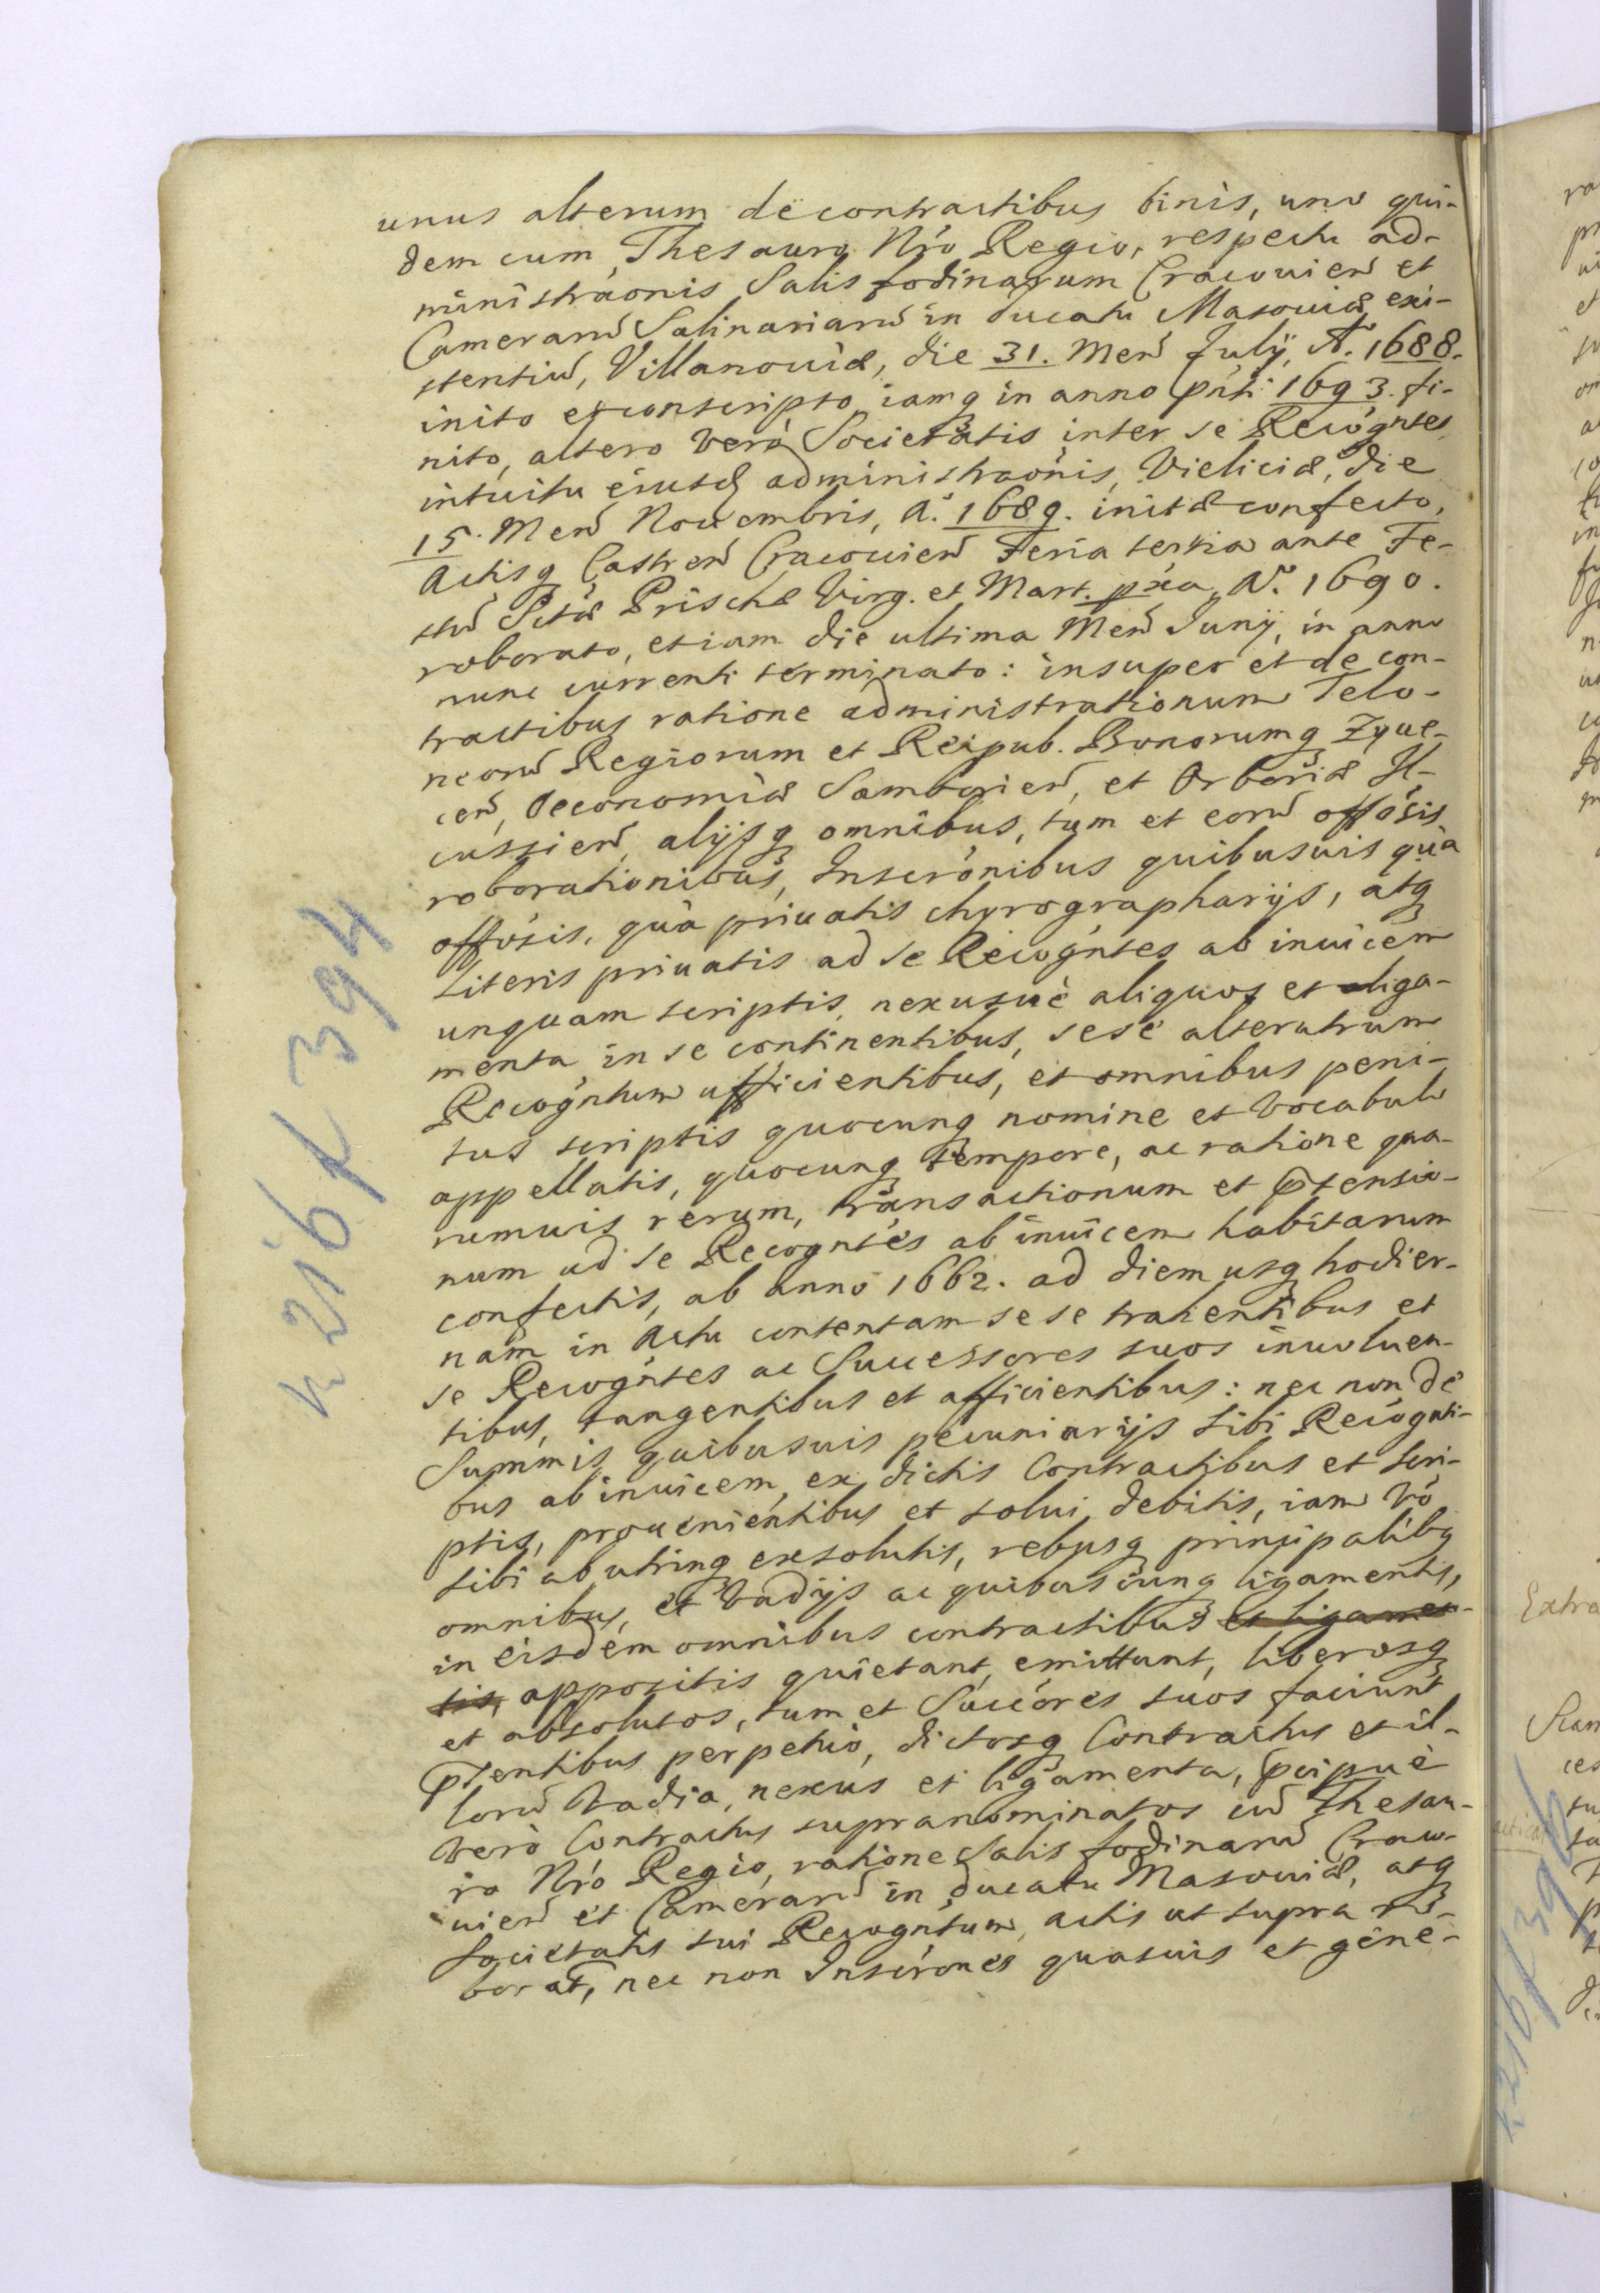 unus alterum de contractibus binis, uno qui-
dem cum Thesauro Nr̃o Regio, respectu ad-
ministraõnis Salis fodinarum Cracouien̄ et
Camerarū Salinariarū in ducatu Masouiæ exi-
stentiū, Villanouiæ, die 31. Men̄ Julÿ, Aº. 1688.
inito et conscripto, iamq̃ in anno p̃nti 1693. fi-
nito, altero verò Societatis inter se Recogñtes
intuitu eiusd̃ administraõnis, Vieliciæ, die
15. Men̄ Nouembris, Aº. 1689. initæ confecto,
Actisq̃ Castren̄ Cracouien̄ Feria tertia ante Fe-
stū Sctæ Priscæ Virg. et Mart. px̃a, Aº. 1690.
roborato, etiam die ultima Men̄ Junÿ, in anno
nunc currenti terminato: insuper et de con-
tractibus ratione administrationum Telo-
neorū Regiorum et Reipub. Bonorumq̃ Zyue-
cen̄, Oeconomiæ Samborien̄, et Orboriæ Il-
cussien̄, alijsq̃ omnibus, tum et eorū offõsis
roborationibus, Inscrõnibus quibusuis quà
offõsis, quà priuatis chyrographarijs, atq̃
Literis priuatis ad se Recogñtes ab inuicem
unquam scriptis, nexusuè aliquos et liga-
menta in se continentibus, sese alterutrum
Recogñtum afficientibus, et omnibus peni-
tus scriptis quocunq̃ nomine et vocabulo
appellatis, quocunq̃ tempore, ac ratione qua-
rumuis rerum, transactionum et p̃tensio-
num ad se Recogñtes ab inuicem habitarum
confectis, ab anno 1662. ad diem usq̃ hodier-
nam in Actu contentam sese trahentibus et
se Recogñtes ac Successores suos inuoluen-
tibus, tangentibus et afficientibus: nec non de
Summis quibusuis pecuniarijs sibi Recognti-
bus ab inuicem, ex dictis Contractibus et scri-
ptis, prouenientibus et solui debitis, iam vò
sibi ab utrinq̃ exsolutis, rebusq̃ principalibq̃
omnibus, et vadijs ac quibuscunq̃ ligamentis,
in eisdem omnibus contractibus et ligamen-
tis, appositis quietant, emittunt, liberosq̃
et absolutos, tum et Succõres suos faciunt
p̃sentibus perpetuò, dictosq̃ Contractus et il-
lorū vadia, nexus et ligamenta, p̃cipuè
verò Contractus supranominatos cū Thesau-
ro Nr̃o Regio, ratione Salis fodinarū Craco-
uien̄ et Camerarū in ducatu Masouiæ, atq̃
Societatis sui Recogntum, actis ut supra ro-
borat̃, nec non Inscrõnes quasuis et gene-
k 216 f 394
Extra
k 216 f 395